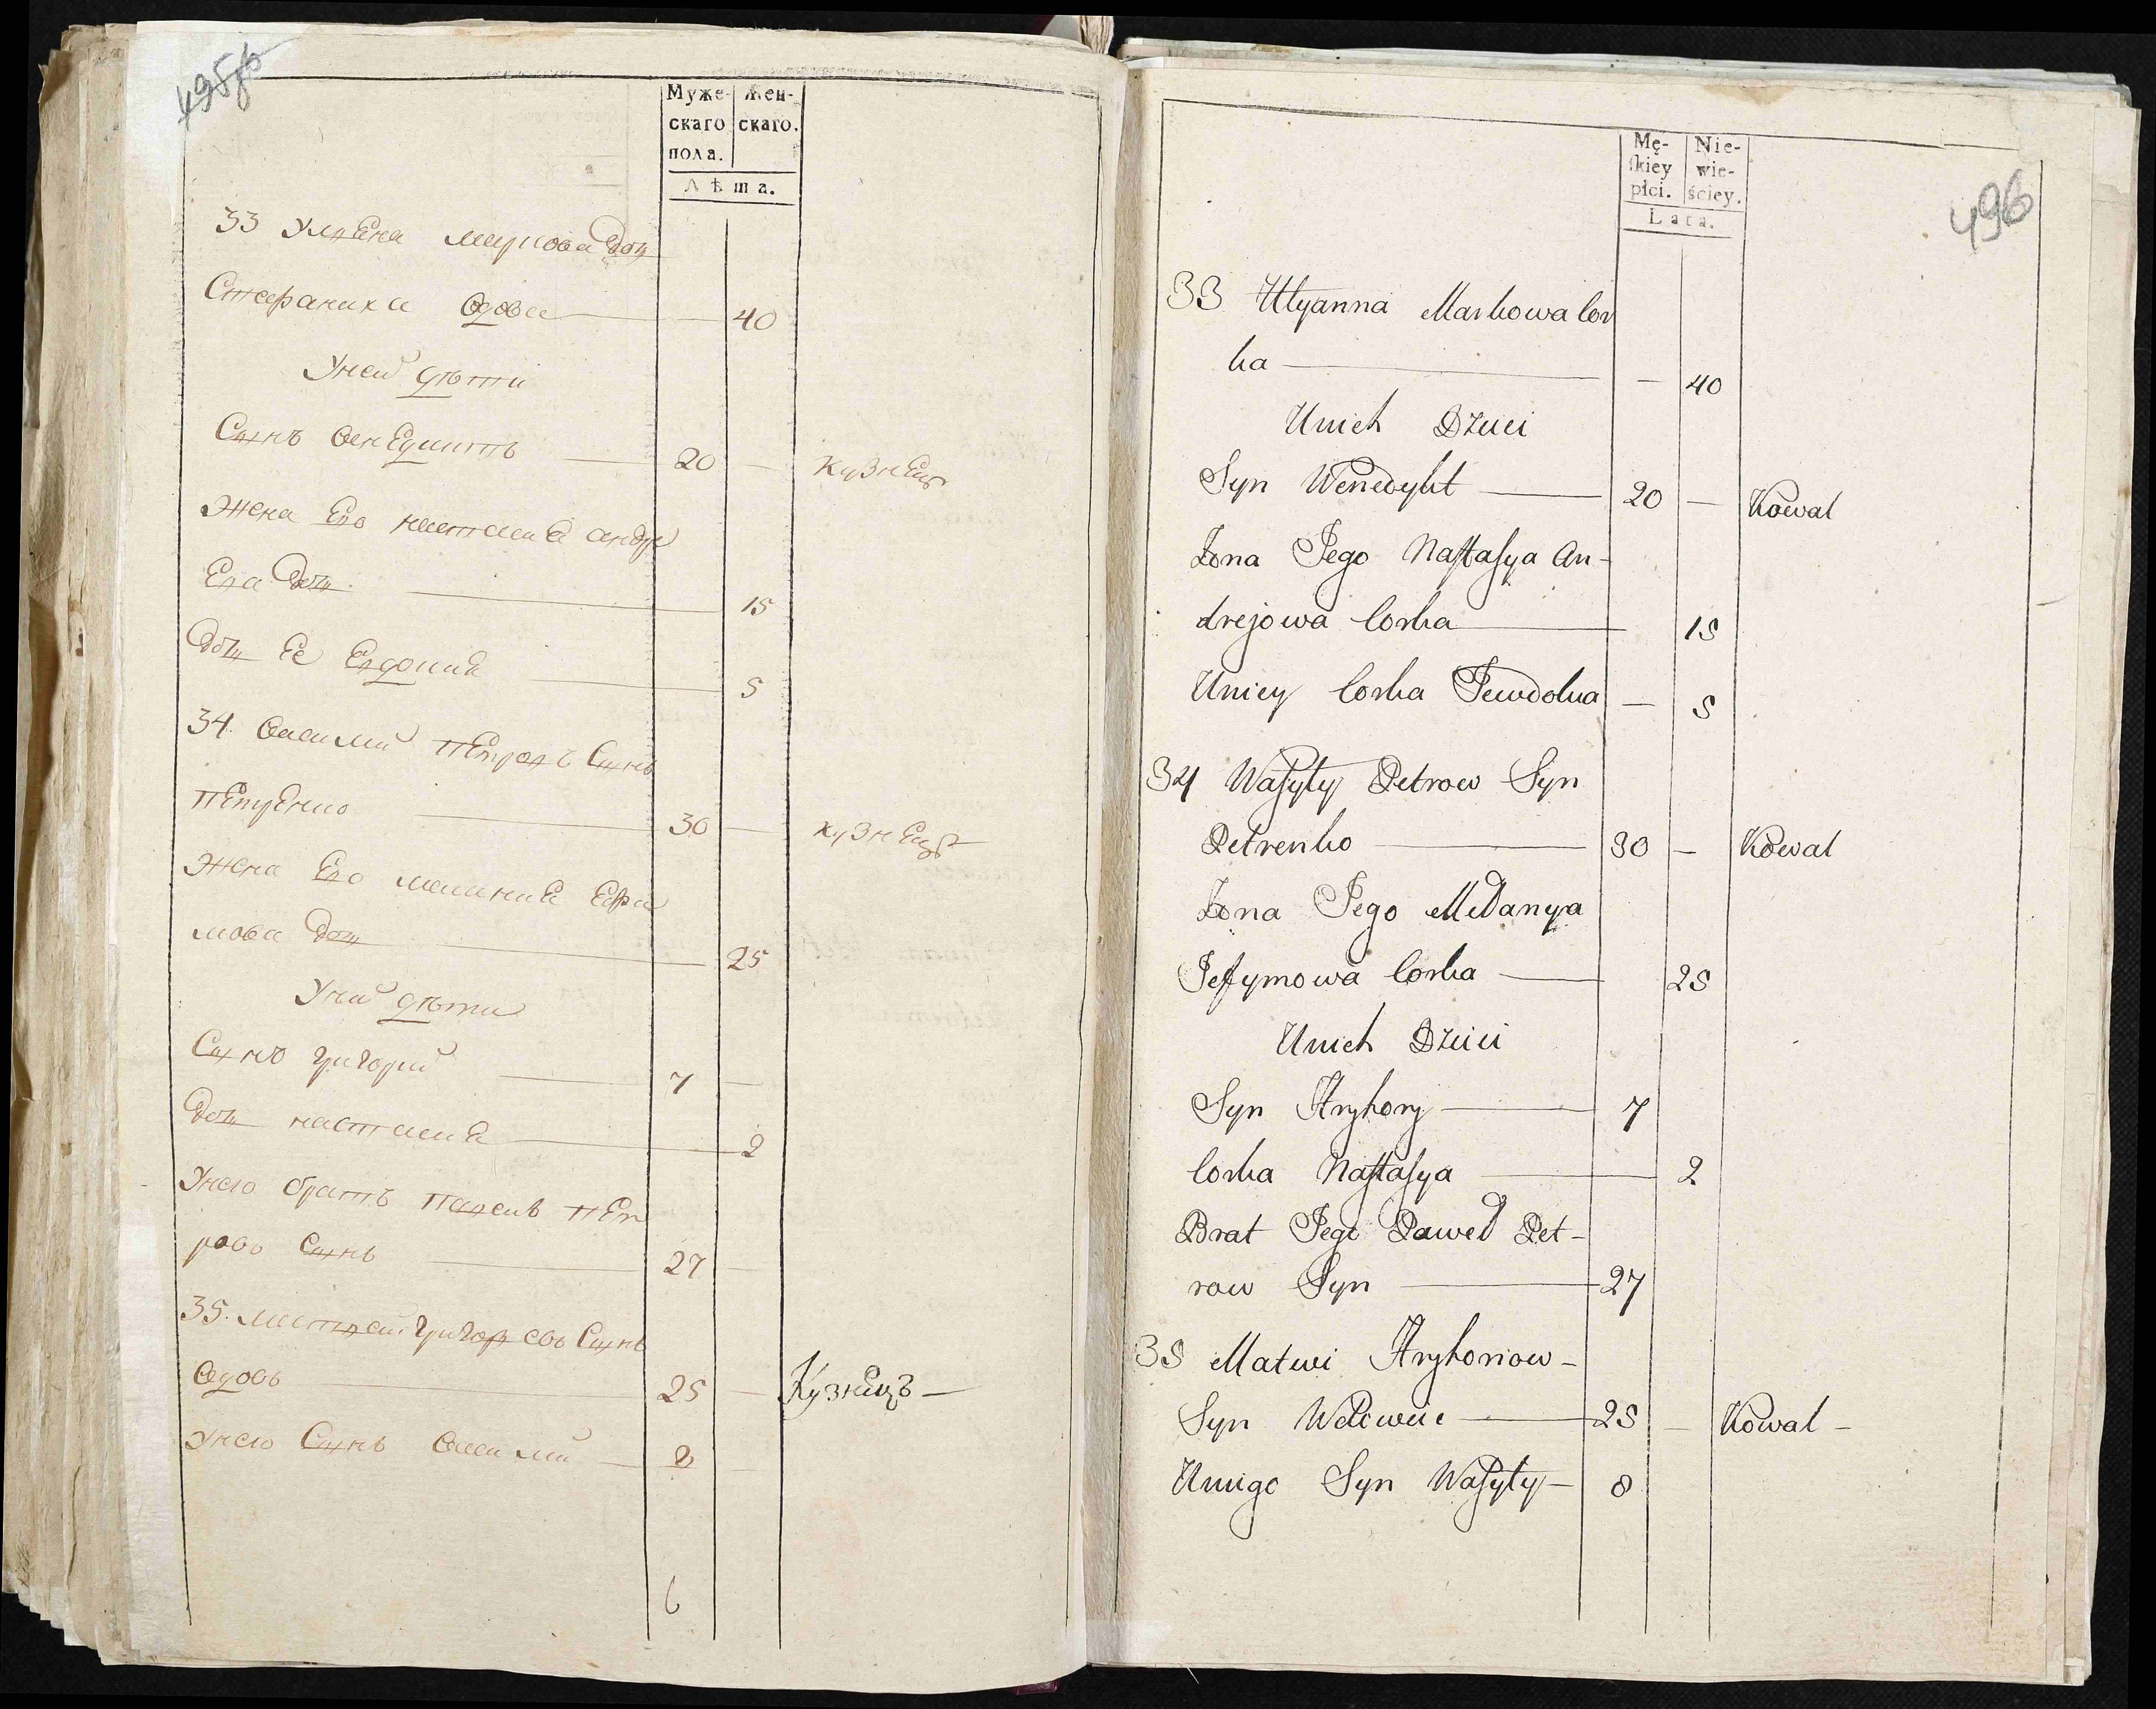 495об
Муже- Жен-
скаго скаго.
пола.
Лѣта.
33 Улвяна маркова доч
Стефаниха вдова — 40
У неи дѣти
Сынъ венедиктъ — 20 — кузнецъ
Жена Его настасиа андре
Ева доч — 15
доч Ее Евдокиа — 5
34. василий ПЕтровъ Сынъ
ПЕтренко — 30 — кузнецъ
Жена Его меланиа Ефи
мова доч — 25
У них дѣти
Сынъ григорий — 7 —
доч настасиа — 2
У него братъ павелъ ПЕт
ровъ Сынъ — 27 —
35. матвей григорьевъ Сынъ
вдовъ — 25 — Кузнецъ —
У него Сынъ василий — 8 —
6
496
Mę- Nie-
ſkiey wie-
płci. ściey.
Lata.
33 Ulyanna Markowa Cor
ka — — 40
Unich Dzieci
Syn Wenedykt — 20 — Kowal
Żona Jego Naſtaſya An-
drejowa Corka — 15
Uniey Corka Jewdokia — 5
34 Waſyly Petrow Syn
Petrenko — 30 — Kowal
Żona Jego Mełanya
Jefymowa Corka — 25
Unich Dzieci
Syn Hryhory — 7
Corka Naſtaſya — 2
Brat Jego Paweł Pet-
row Syn — 27
35 Matwi Hryhoriow-
Syn — 25 — Kowal —
Uniego Syn Waſyly — 8